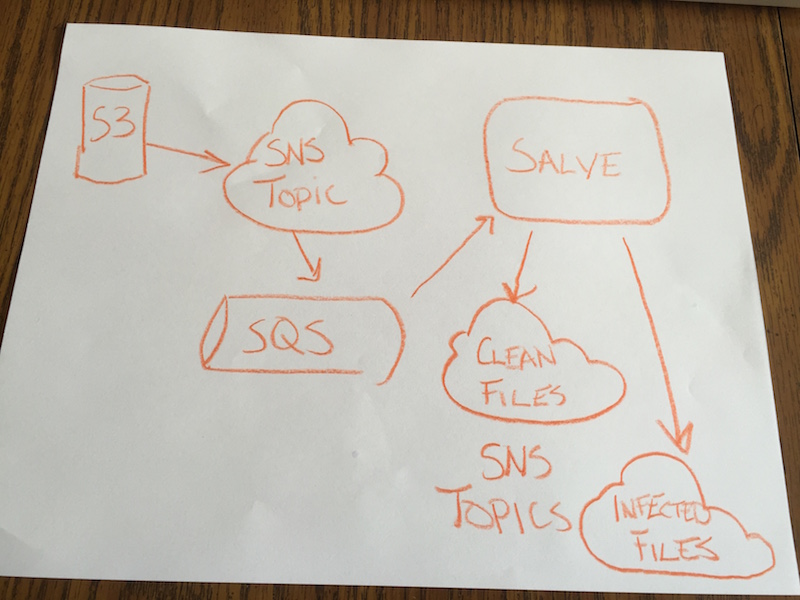 S3
SNS
TOPIC
SQS
SALVE
CLEAN
FILES
SNS
TOPICS
INFECTED
FILES